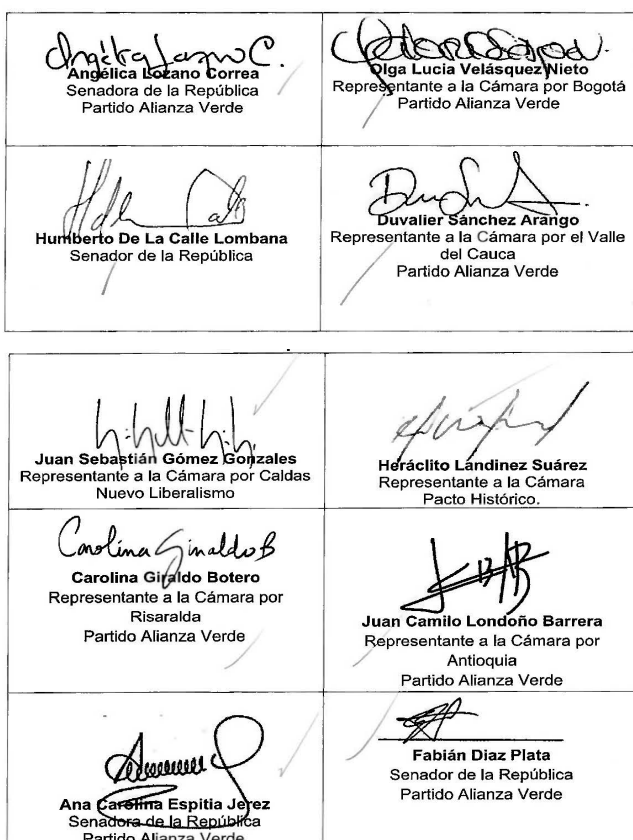 Angélica Lozano C.
Angélica Lozano Correa
Senadora de la República
Partido Alianza Verde
Olga Lucia Velásquez Nieto
Representante a la Cámara por Bogotá
Partido Alianza Verde
Humberto De La Calle Lombana
Senador de la República
Duvalier Sánchez Arango
Representante a la Cámara por el Valle
del Cauca
Partido Alianza Verde
Juan Sebastián Gómez Gonzales
Representante a la Cámara por Caldas
Nuevo Liberalismo
Heráclito Landinez Suárez
Representante a la Cámara
Pacto Histórico.
Carolina Giraldo B
Carolina Giraldo Botero
Representante a la Cámara por
Risaralda
Partido Alianza Verde
Juan Camilo Londoño Barrera
Representante a la Cámara por
Antioquia
Partido Alianza Verde
Ana Carolina Espitia Jerez
Senadora de la República
Partido Alianza Verde
Fabián Diaz Plata
Senador de la República
Partido Alianza Verde